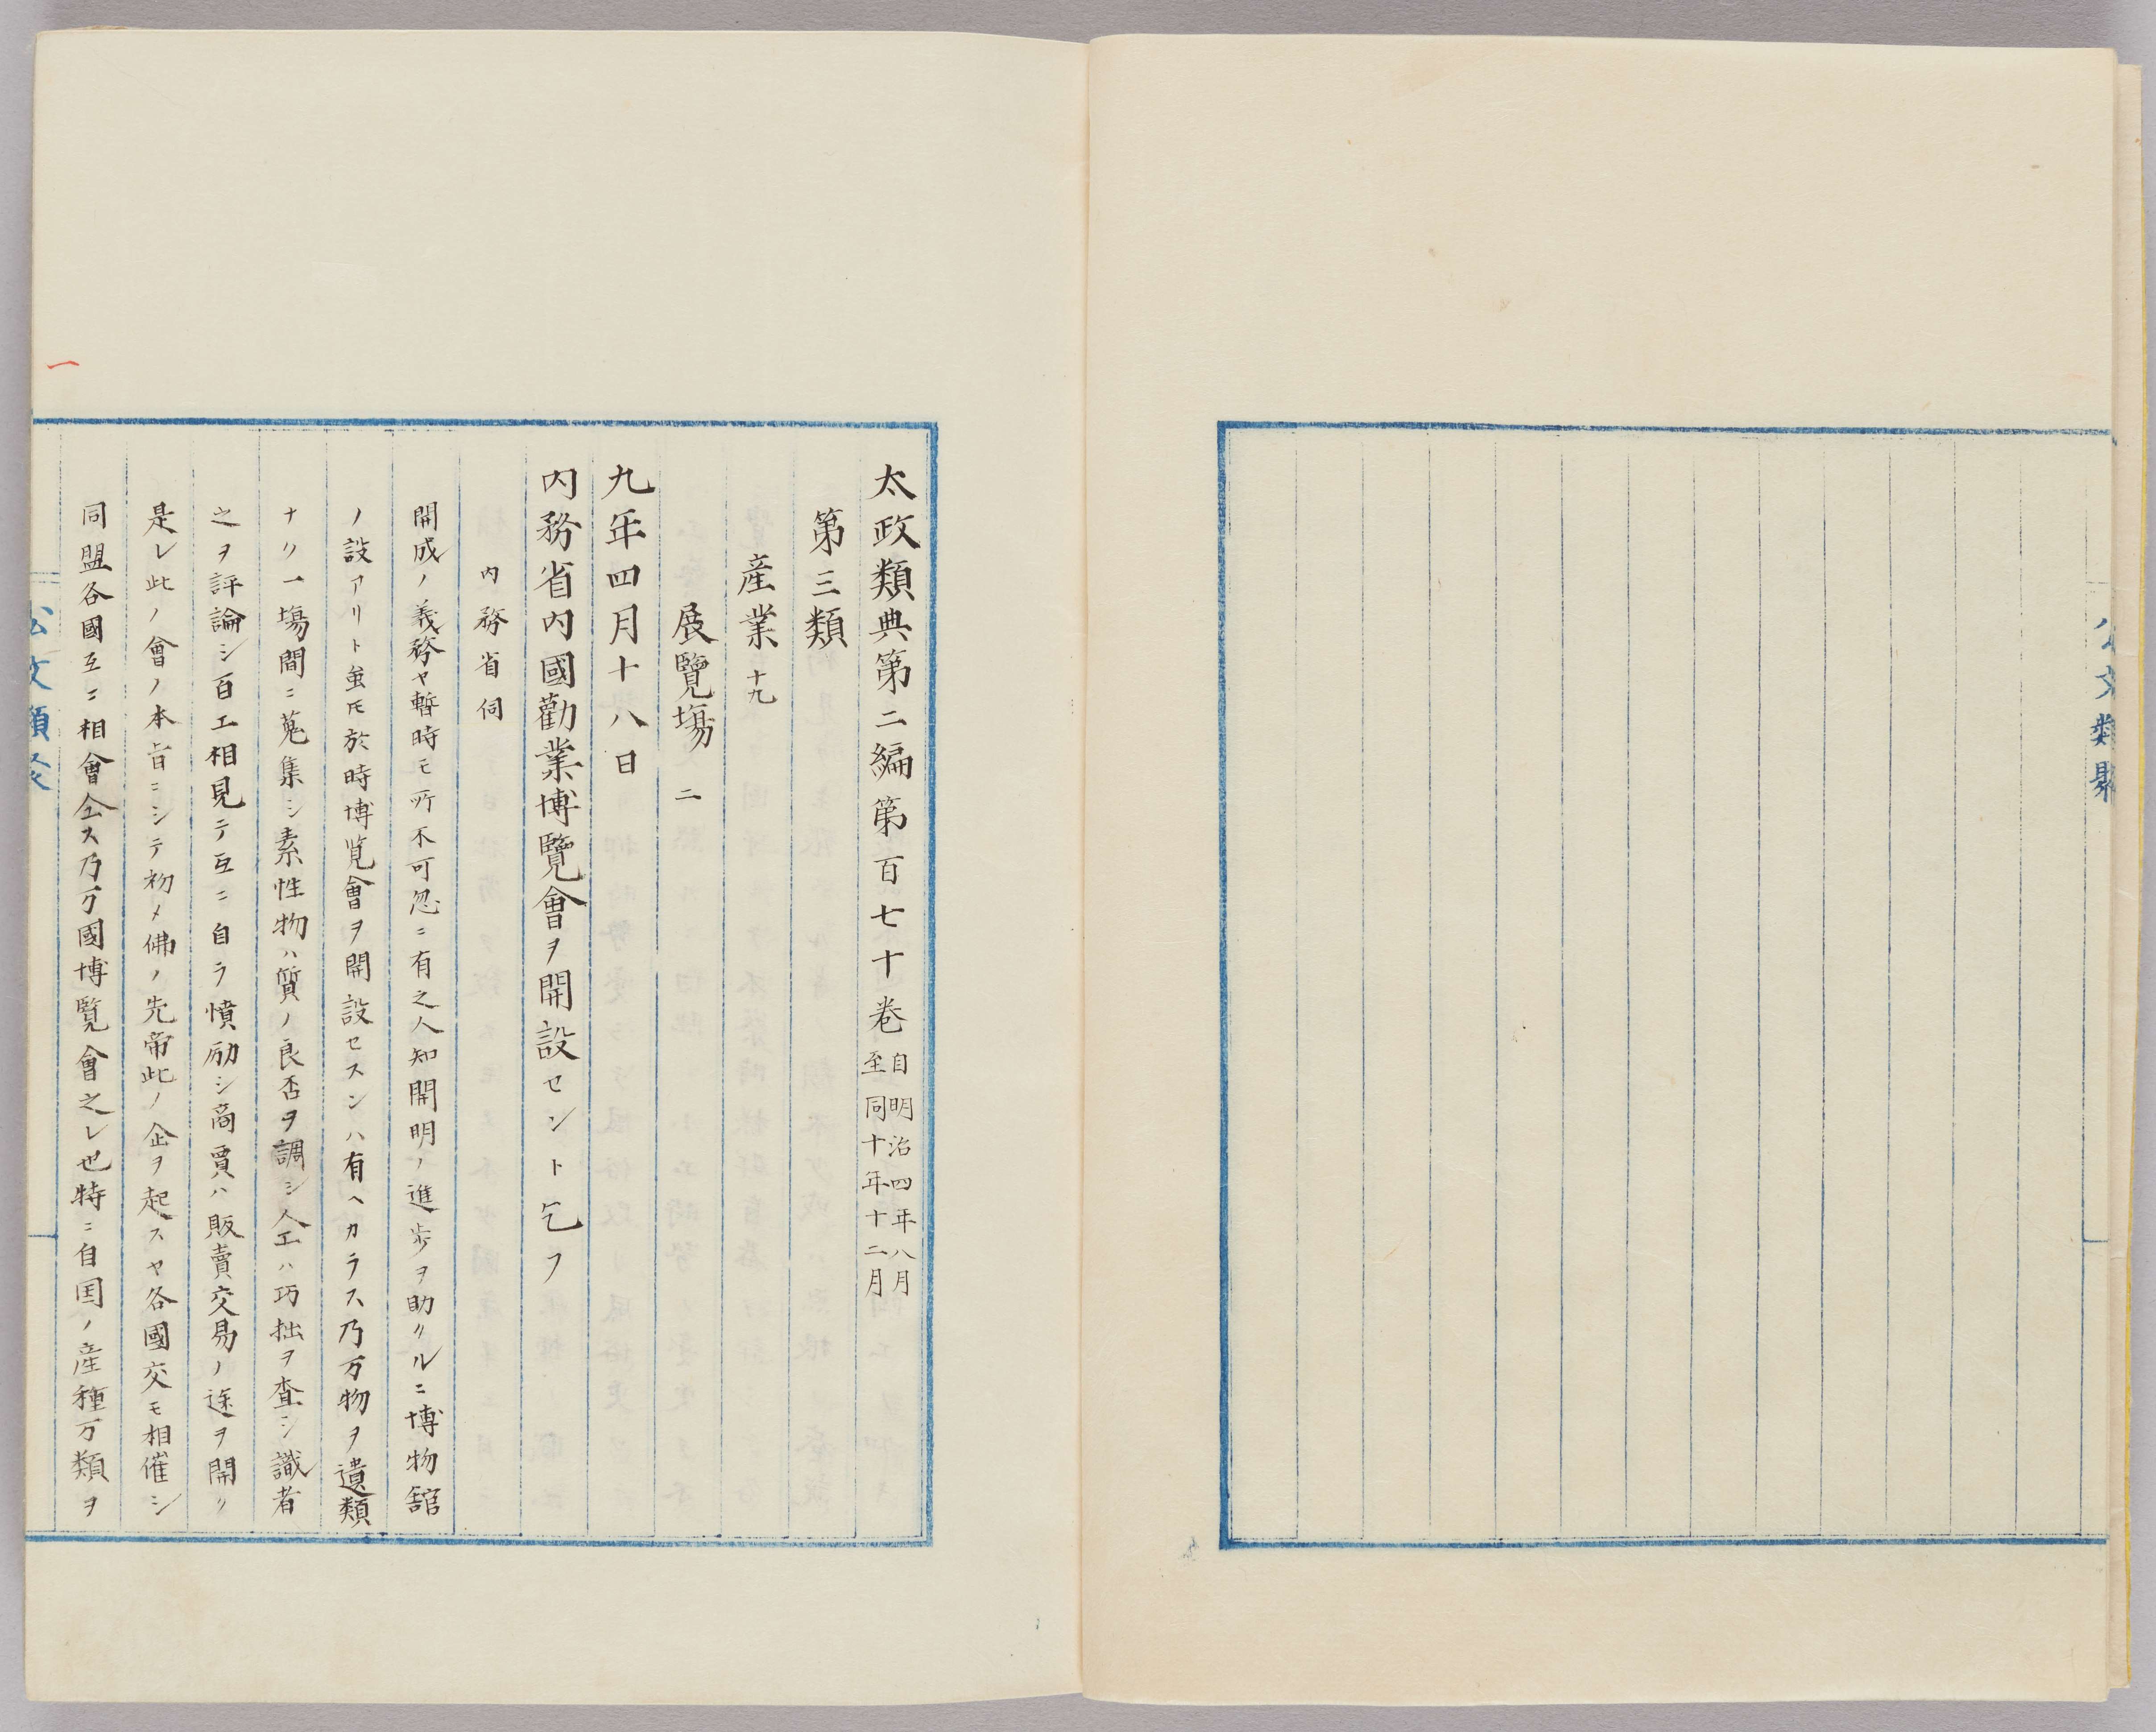 公文類聚
太政類典第二編第百七十卷 自明治四年八月 至同十年十二月
第三類
産業 十九
展覽塲 二
九年四月十八日
内務省内國勸業博覽會ヲ開設セント乞フ
内務省伺
開成ノ義務ヤ暫時モ所不可忽ニ有之人知開明ノ進歩ヲ助クルニ博物舘
ノ設アリト虽𪜈於時博覧會ヲ開設セスンハ有ヘカラス乃万物ヲ遺類
ナク一塲間ニ蒐集シ素性物ハ質ノ良否ヲ調シ人工ハ巧拙ヲ査シ識者
之ヲ評論シ百工相見テ互ニ自ラ憤励シ商賈ハ販賣交易ノ途ヲ開ク
是レ此ノ會ノ本旨ニシテ初メ佛ノ先帝此ノ企ヲ起スヤ各國交モ相催シ
同盟各國互ニ相會仝ス乃万國博覽會之レ也特ニ自国ノ産種万類ヲ
一
公文類聚